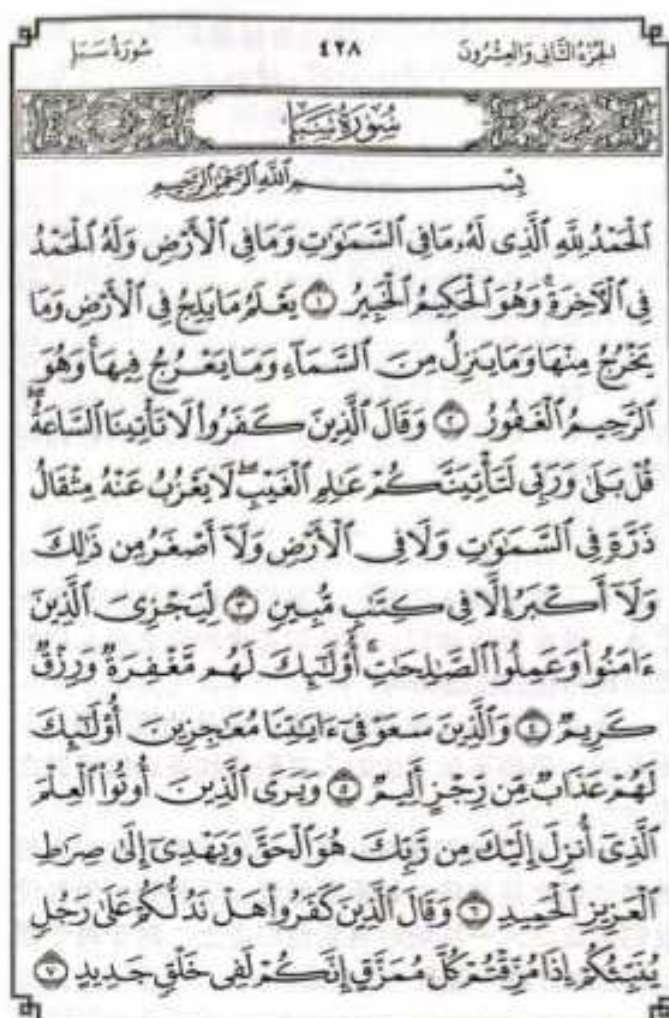 الجزء الثاني والعشرون ٤٢٨ سورة سبإ
سُورَةُ سَبَإٍ
بِسْمِ ٱللَّهِ ٱلرَّحْمَٰنِ ٱلرَّحِيمِ
ٱلْحَمْدُ لِلَّهِ ٱلَّذِى لَهُۥ مَا فِى ٱلسَّمَٰوَٰتِ وَمَا فِى ٱلْأَرْضِ وَلَهُ ٱلْحَمْدُ
فِى ٱلْءَاخِرَةِ ۚ وَهُوَ ٱلْحَكِيمُ ٱلْخَبِيرُ ١ يَعْلَمُ مَا يَلِجُ فِى ٱلْأَرْضِ وَمَا
يَخْرُجُ مِنْهَا وَمَا يَنزِلُ مِنَ ٱلسَّمَآءِ وَمَا يَعْرُجُ فِيهَا ۚ وَهُوَ
ٱلرَّحِيمُ ٱلْغَفُورُ ٢ وَقَالَ ٱلَّذِينَ كَفَرُوا۟ لَا تَأْتِينَا ٱلسَّاعَةُ ۖ
قُلْ بَلَىٰ وَرَبِّى لَتَأْتِيَنَّكُمْ عَٰلِمِ ٱلْغَيْبِ ۖ لَا يَعْزُبُ عَنْهُ مِثْقَالُ
ذَرَّةٍ فِى ٱلسَّمَٰوَٰتِ وَلَا فِى ٱلْأَرْضِ وَلَآ أَصْغَرُ مِن ذَٰلِكَ
وَلَآ أَكْبَرُ إِلَّا فِى كِتَٰبٍ مُّبِينٍ ٣ لِّيَجْزِىَ ٱلَّذِينَ
ءَامَنُوا۟ وَعَمِلُوا۟ ٱلصَّٰلِحَٰتِ ۚ أُو۟لَٰٓئِكَ لَهُم مَّغْفِرَةٌ وَرِزْقٌ
كَرِيمٌ ٤ وَٱلَّذِينَ سَعَوْ فِىٓ ءَايَٰتِنَا مُعَٰجِزِينَ أُو۟لَٰٓئِكَ
لَهُمْ عَذَابٌ مِّن رِّجْزٍ أَلِيمٌ ٥ وَيَرَى ٱلَّذِينَ أُوتُوا۟ ٱلْعِلْمَ
ٱلَّذِىٓ أُنزِلَ إِلَيْكَ مِن رَّبِّكَ هُوَ ٱلْحَقَّ وَيَهْدِىٓ إِلَىٰ صِرَٰطِ
ٱلْعَزِيزِ ٱلْحَمِيدِ ٦ وَقَالَ ٱلَّذِينَ كَفَرُوا۟ هَلْ نَدُلُّكُمْ عَلَىٰ رَجُلٍ
يُنَبِّئُكُمْ إِذَا مُزِّقْتُمْ كُلَّ مُمَزَّقٍ إِنَّكُمْ لَفِى خَلْقٍ جَدِيدٍ ٧